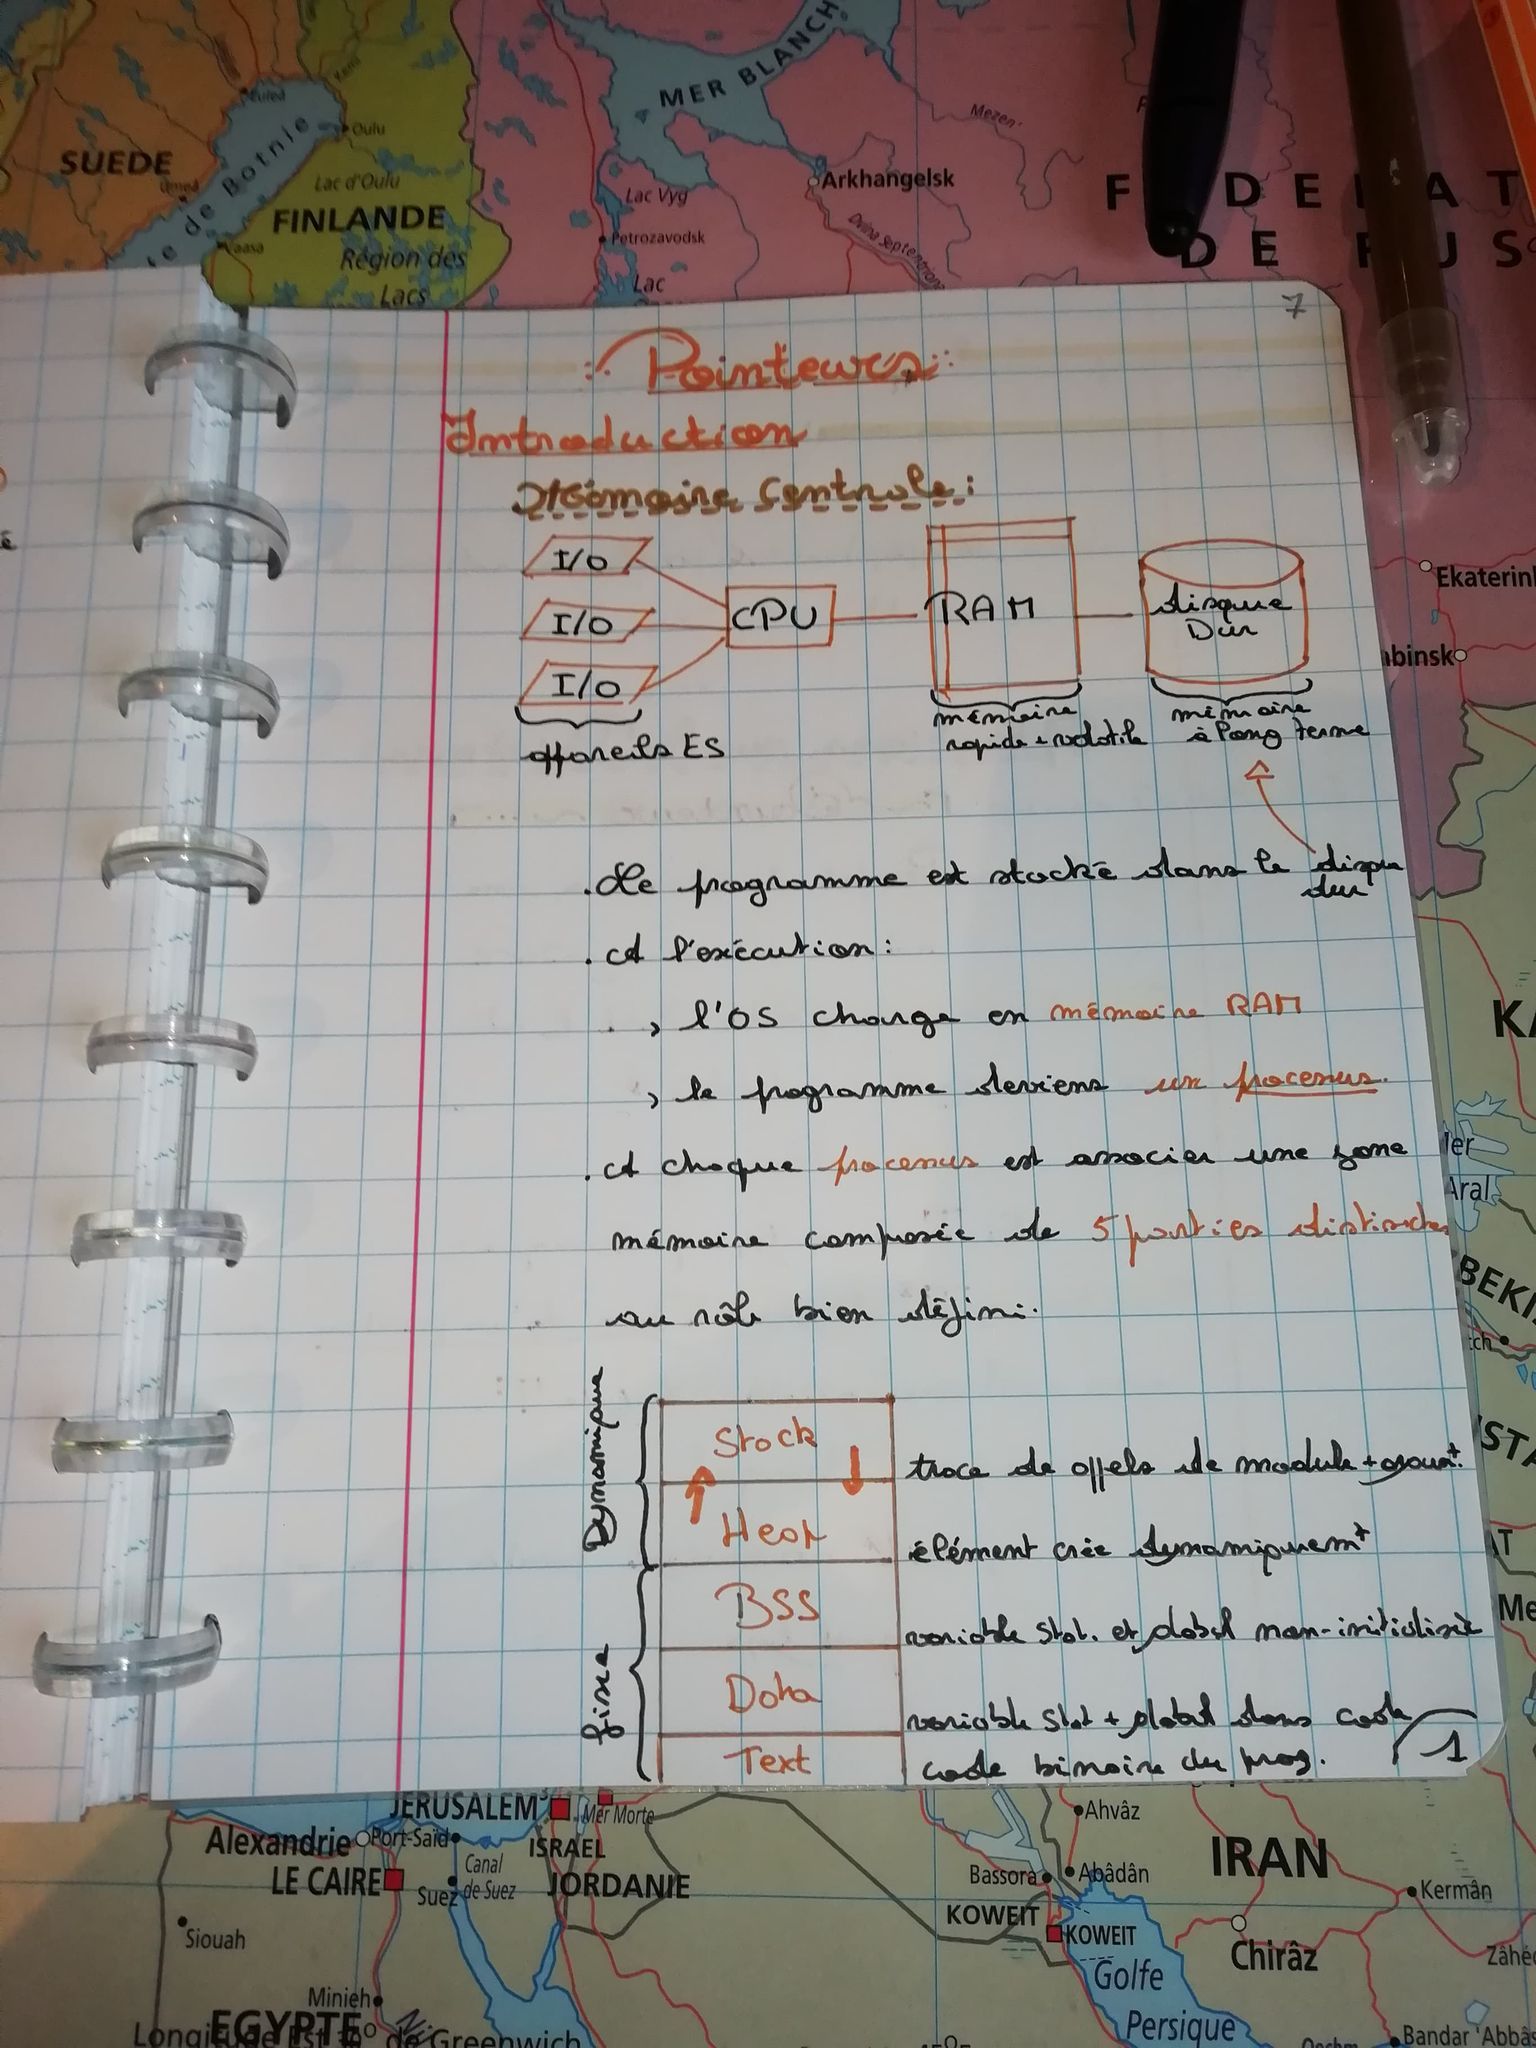 MER BLANCHE
SUEDE
Oulu
Lac d'Oulu
FINLANDE
Vaasa
Région des
Lacs
de Botnie
Lac Vyg
Petrozavodsk
Lac
Arkhangelsk
Mezen'
Dvina Septentrion
DE
7
Pointeurs
Introduction
Mémoire Centrale:
I/O
I/O
I/O
CPU
RAM
disque
Dur
appareils ES
mémoire
rapide + volatile
mémoire
à long terme
. Le programme est stocké dans le disque
dur
. A l'exécution:
, l'OS charge en mémoire RAM
, le programme deviens un processus.
. A chaque processus est associer une zone
mémoire composée de 5 parties distinctes
au rôle bien défini.
Dynamique
Stack
trace de appels de module + argumt.
Heap
élément crée dynamiquemt
fixe
BSS
variable stat. et global non-initialisée
Data
variable stat + global dans code
Text
code binaire du prog.
1
Ekaterin
abinsk
Aral
JERUSALEM
Mer Morte
Alexandrie
Port-Saïd
ISRAEL
LE CAIRE
Canal
de Suez
Suez
JORDANIE
Siouah
Minieh
EGYPTE
Longitude Est de Greenwich
Ahvâz
IRAN
Bassora
Abâdân
Kermân
KOWEIT
KOWEIT
Chirâz
Golfe
Persique
Bandar 'Abbâs